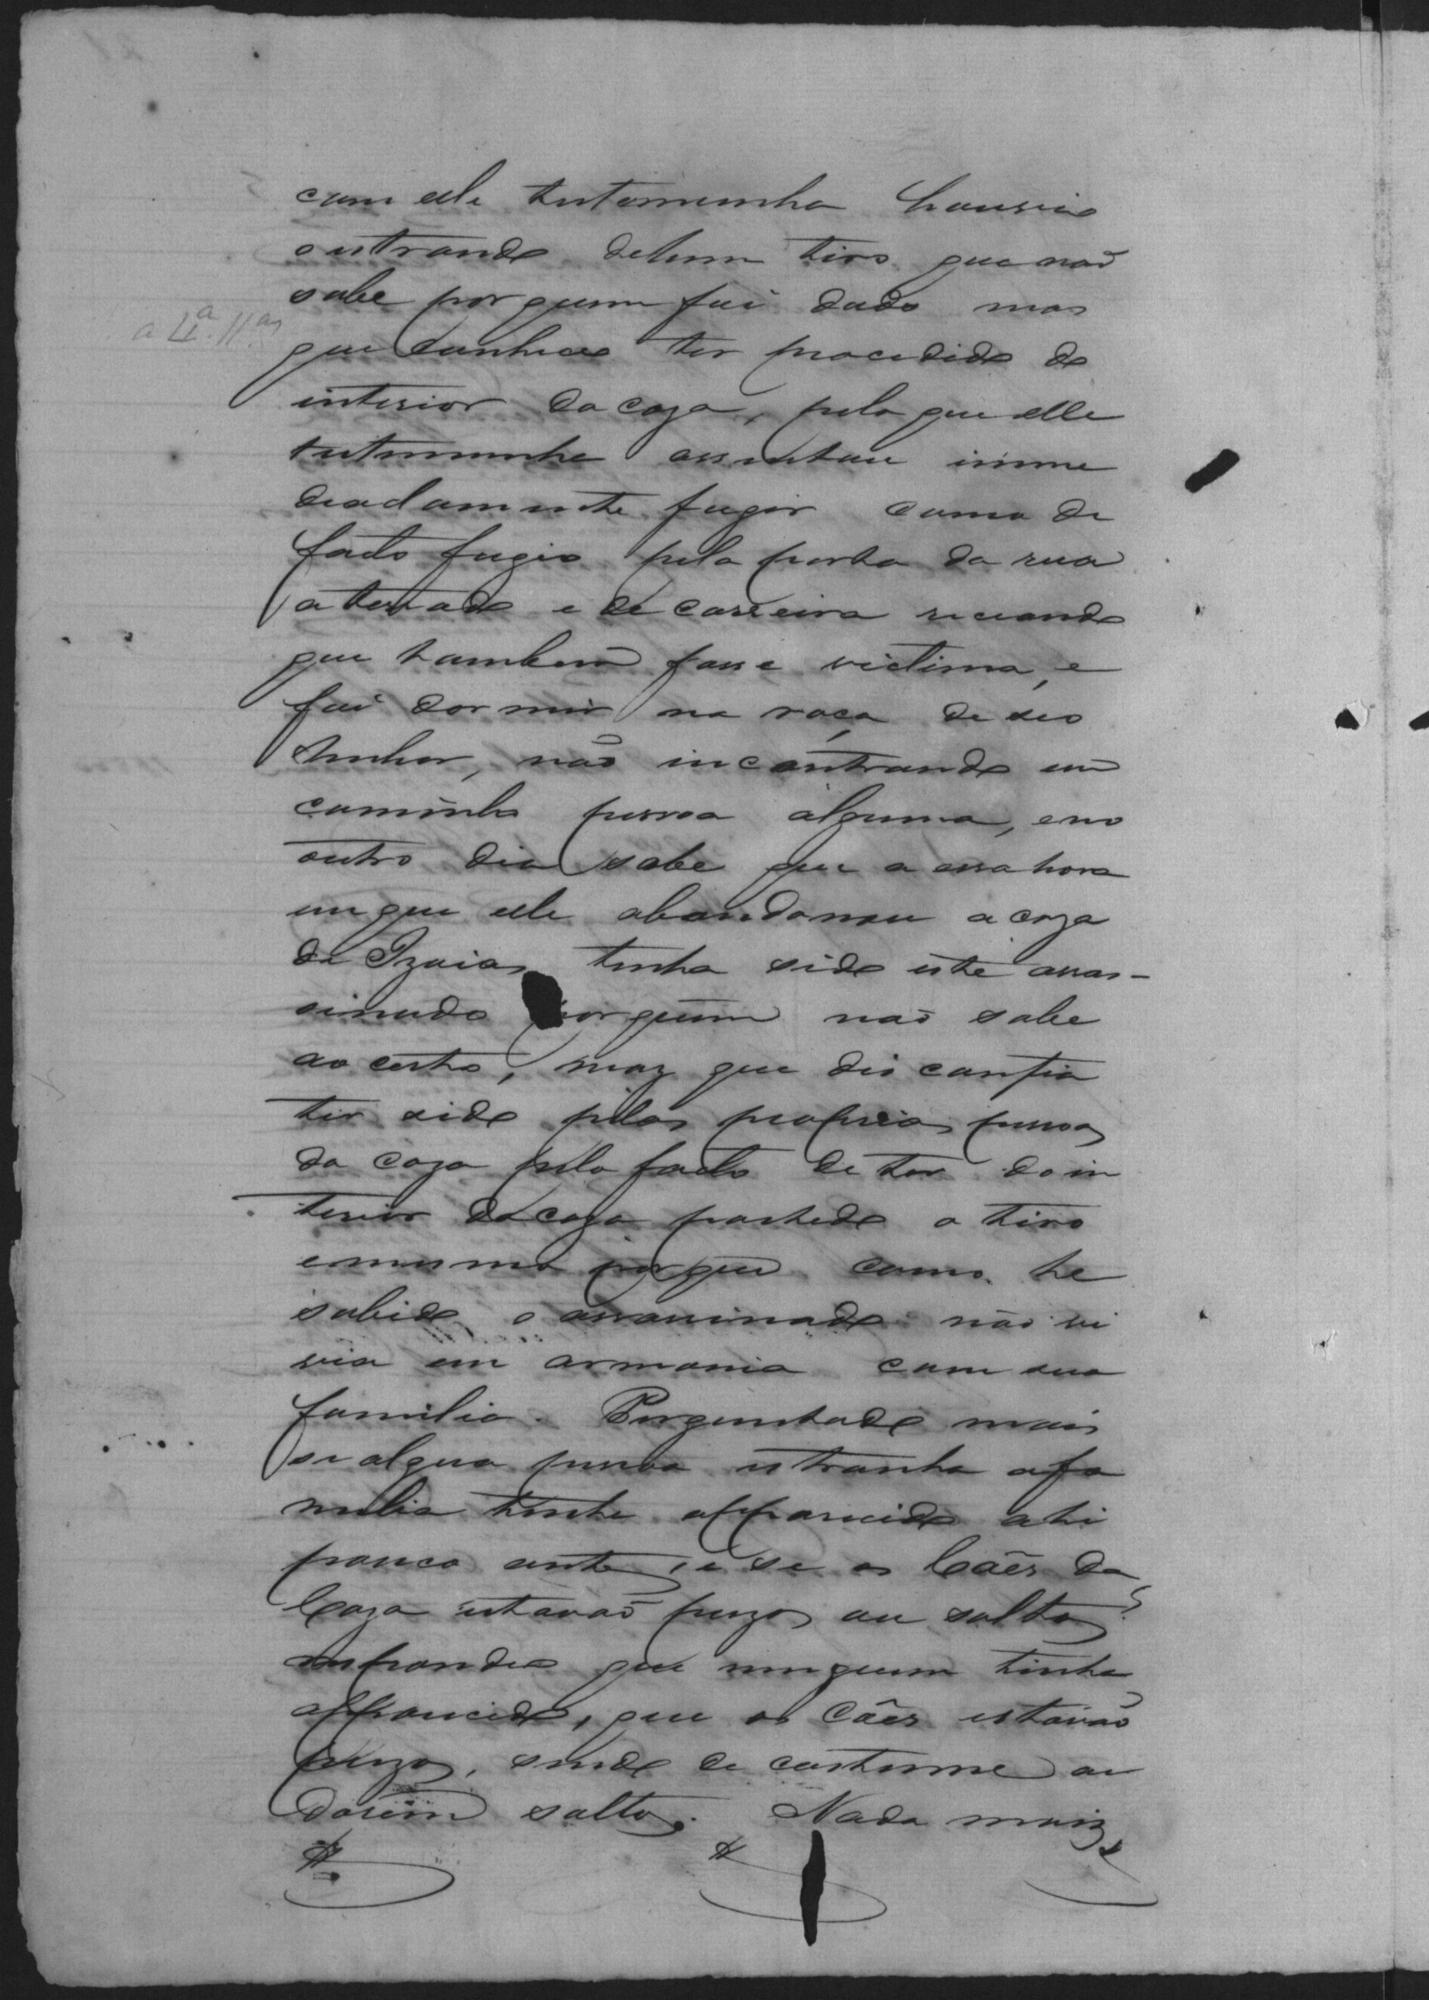 com elle testemunha houvio
o estrondo de hum tiro que naõ
sabe por quem foi dado mas
a 4ª. 11 as
que conheceo ter procedido do
interior da caza, pelo que elle
testemunha assentou imme
diadamente fugir como de
facto fugio pela porta da rua
aterrado e de carreira receando
que tambem fosse victima, e
foi dormir na roça de seo
Senhor, não incontrando em
caminho pessoa alguma, e no
outro dia sobe que a essa hora
em que elle abandonou a caza
de Izaias tinha sido este assas-
sinado por quem naõ sabe
ao certo, maz que discanfia
ter sido pelas proprias pessoas
da caza pelo facto de ter do in
terior da caza partido o tiro
e mesmo porque como he
sabido o assassinado não vi
via em armonia com sua
familia. Perguntado mais
se algua pessoa estranha a fa
milia tinha apparecido ahi
pouco antes, e se os Cães da
Caza estavaõ prezos ou soltos?
respondeo que ninguem tinha
apparecido, que os Cães estavaõ
prezos, sendo de costume an
darem soltos. Nada mais